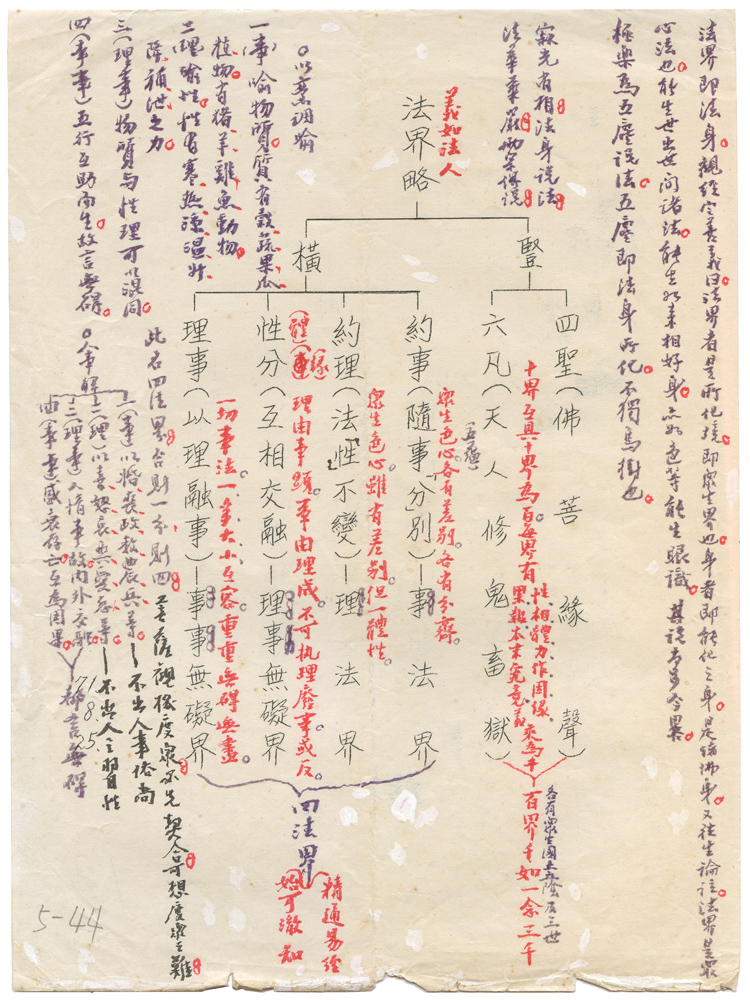 法界即法身。觀經定善義曰法界者是所化境即眾生界也身者即能化之身。是諸佛身。又往生論註法界是眾
心法也。能生世出世間諸法。能生如來相好身。亦如色等能生眼識。其說尚多今畧。
極樂為五塵說法。五塵即法身所化。不獨鳥樹也。
寂光有相法身說法。
法華華嚴
義如法人
法界略
豎
四聖(佛菩緣聲)
六凡(天人修鬼畜獄)
十界互具十界為百每界有性、相、體、力、作、因、緣、果、報、本末究竟
乘為千
百界千如一念三千
各有眾生國土五陰及三世
橫
約事(隨事「分」別)—事法界
眾生色心(五蘊)各有差別。各有分齊。
約理(法「性」不變)—理法界
眾生色心雖有差別但一體性。
性分(互相交融)—理事無礙界
(體)(事)(緣)
理由事顯。事由理成。不可執理廢事或反。
理事(以理融事)—事事無礙界
一切事法一多大小互容。重重無碍無盡。
四法界
精通易經
始可澈知
此名四法界。合則一。分則四。
菩薩觀機度眾必先契合。可想度眾之難。
○以烹調喻
一(事)喻物質。質有穀蔬果瓜
植物。有猪羊雞魚動物。
二理喻性。性有寒熱
降補泄之力。
三(理事)物質与性理可以混同。
四(事事)五行互助而生故言無碍。
○人事解
一(事)以婚喪政教農兵等—不出人事俗尚
二(理)以喜怒哀樂愛惡等—不出人之習性
三(理事)人情事故內外交融
四(事事)盛衰存亡互為因果
都言無碍
71.8.5.
5-44